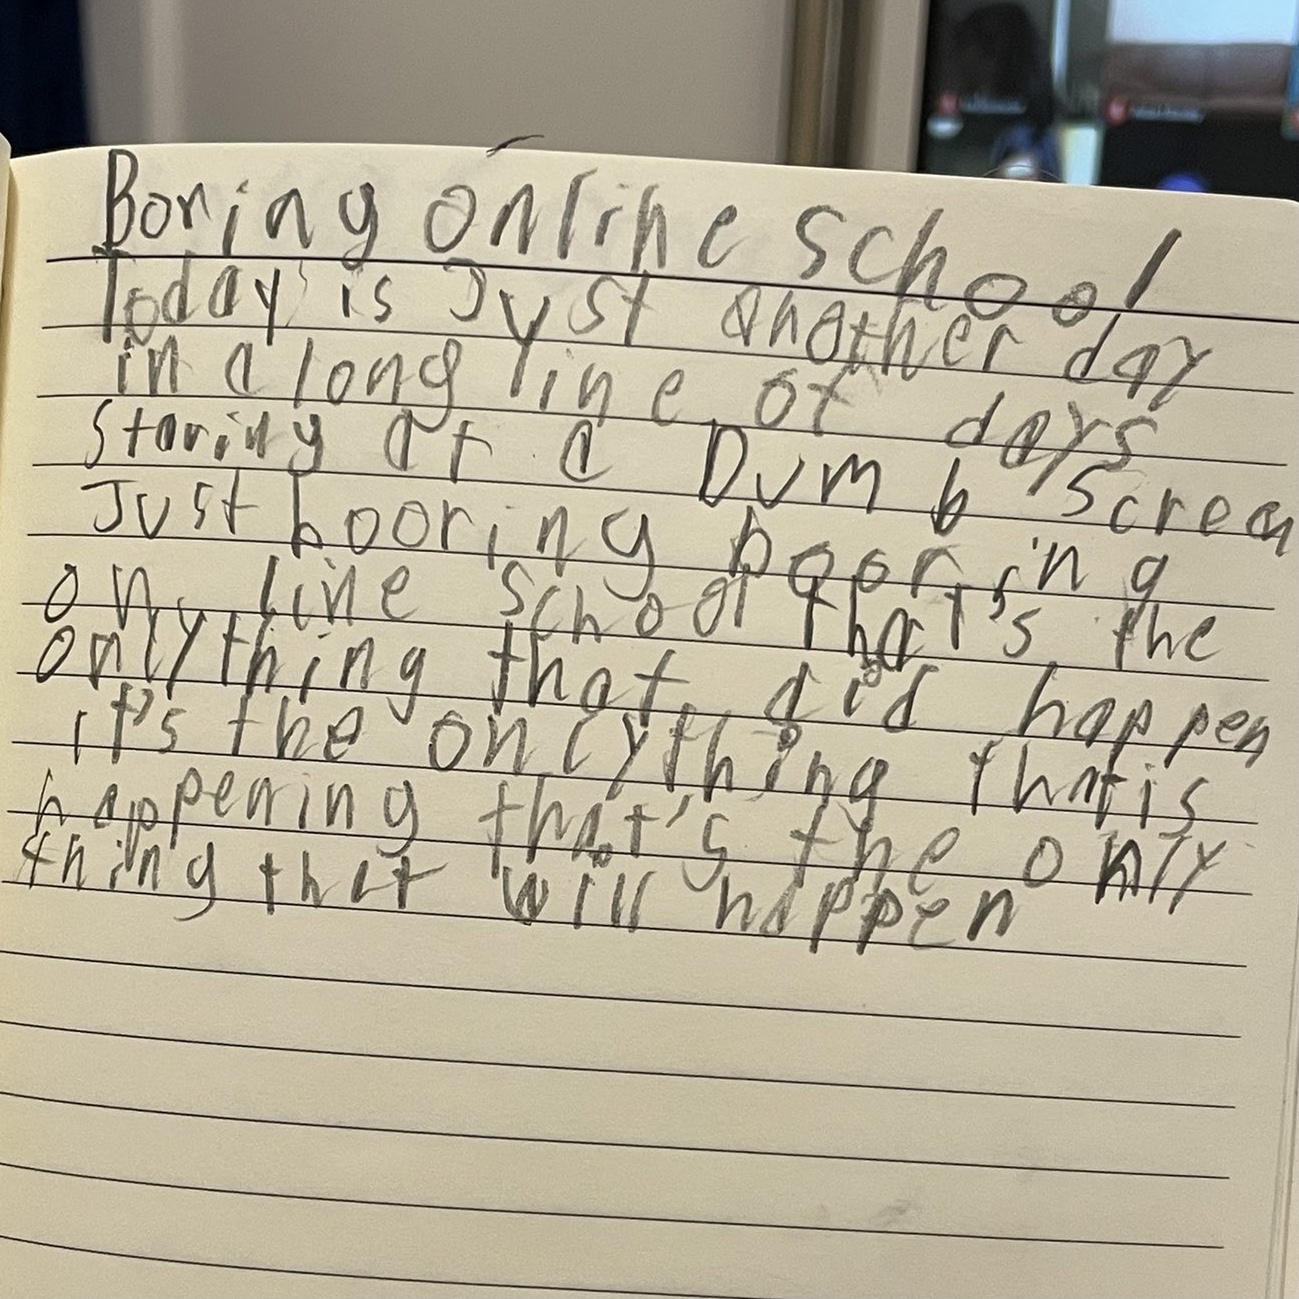 Boring online school
Today is Just another day
in a long line of days
staring at a Dumb screen
Just booring booring
on line school that's the
only thing that did happen
it's the only thing that is
happening that's the only
thing that will happen